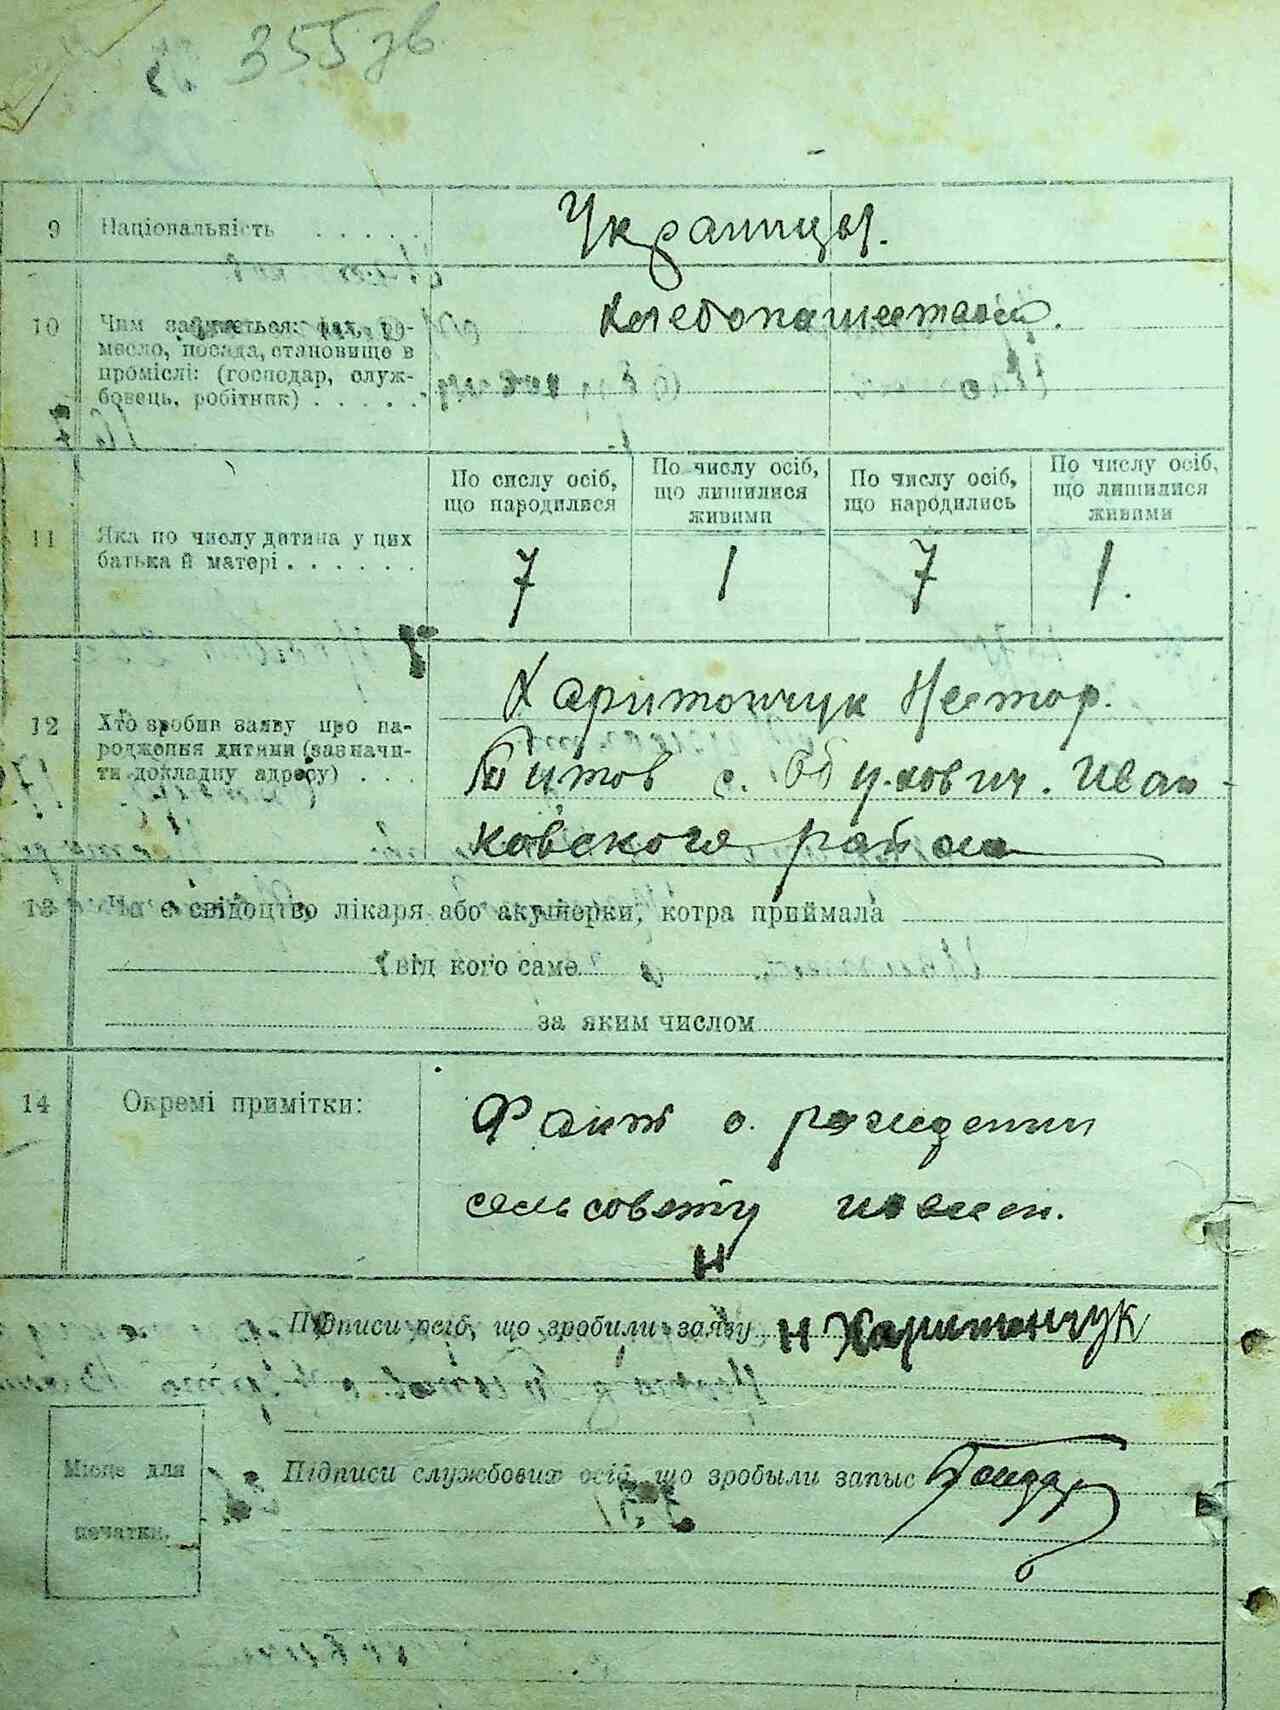 355 зв
9 Національність . . . . .
Украинцы.
10 Чим займається: фах, ре-
месло, посада, становище в
проміслі: (господар, служ-
бовець, робітник) . . . . .
Хлебопашеством.
11 Яка по числу дитина у цих
батька й матері . . . . . .
По сислу осіб,
що народилися
По числу осіб,
що лишилися
живими
По числу осіб,
що народились
По числу осіб,
що лишилися
живими
7 1 7 1.
12 Хто зробив заяву про на-
родження дитини (зазначи-
ти докладну адресу) . . .
Харитончук Нестор.
Титов с. Обухович. Иван-
ковского района
13 Чи є свідоцтво лікаря або акушерки, котра приймала
(від кого саме
за яким числом
14 Окремі примітки:
Факт о рождении
сельсовету извесен.
Підписи осіб, що зробили заяву Н Харитончук
Місце для
печатки.
Підписи службових осіб, що зробыли запыс